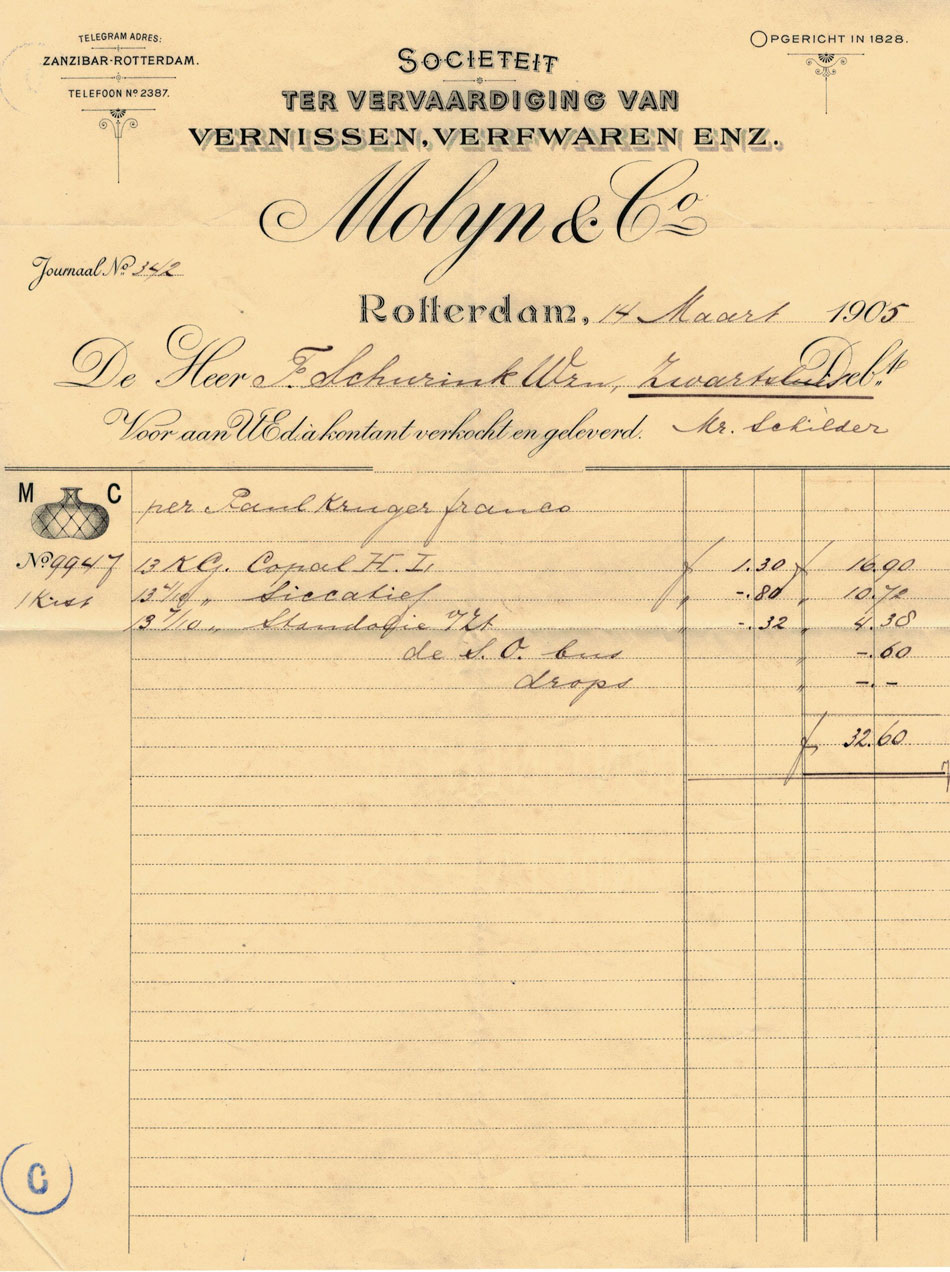 TELEGRAM ADRES:
ZANZIBAR-ROTTERDAM.
TELEFOON No 2387.
OPGERICHT IN 1828.
SOCIETEIT
TER VERVAARDIGING VAN
VERNISSEN, VERFWAREN ENZ.
Molyn & Co
Journaal No 342
Rotterdam, 14 Maart 1905
De Heer F. Schurink Wzn, Zwartsluis Debt
Voor aan UEd. à kontant verkocht en geleverd. Mr. Schilder
M C per Paul Kruger franco
No 9947 13 KG. Copal H. I, f 1.30 f 16.90
1 Kist 13 4/10 „ Siccatief „ -.80 „ 10.72
13 7/10 „ Standolie „ -.32 „ 4.38
de S. O. bus „ -.60
drops „ -.-
f 32.60
C